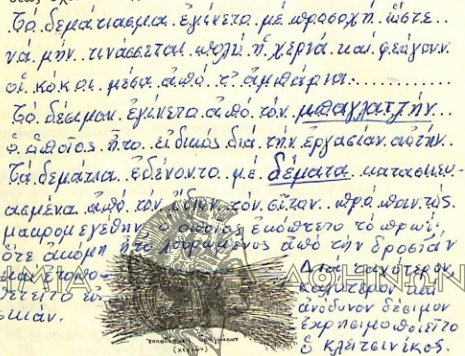 Τό δεμάτιασμα ἐγίνετο μέ προσοχή ὥστε..
νά μήν τινάσσεται πολύ ἡ χεριά καί φεύγουν
οἱ κόκκοι μέσα ἀπό τ' ἀμπάρια............
Τό δέσιμον ἐγίνετο ἀπό τόν μπαγλατζήν..
ὁ ὁποῖος ἦτο εἰδικός διά τήν ἐργασίαν αὐτήν..
Τά δεμάτια ἐδένοντο μέ δέματα κατασκευ-
ασμένα ἀπό τόν ἴδιον τόν σῖτον πρό παντός
μακρομεγέθην ὁ ὁποῖος ἐκόπτετο τό πρωί,
ὅτε ἀκόμη ἦτο ὑγρωμένος ἀπό τήν δροσιάν
καί ἐτοπο-
θετεῖτο
σκιάν.
Διά ταχύτερον
καλύτερον καί
ἀνόδυνον δέσιμον
ἐχρησιμοποιεῖτο
ὁ κλειτσινίκος.
ΑΘΗΝΩΝ